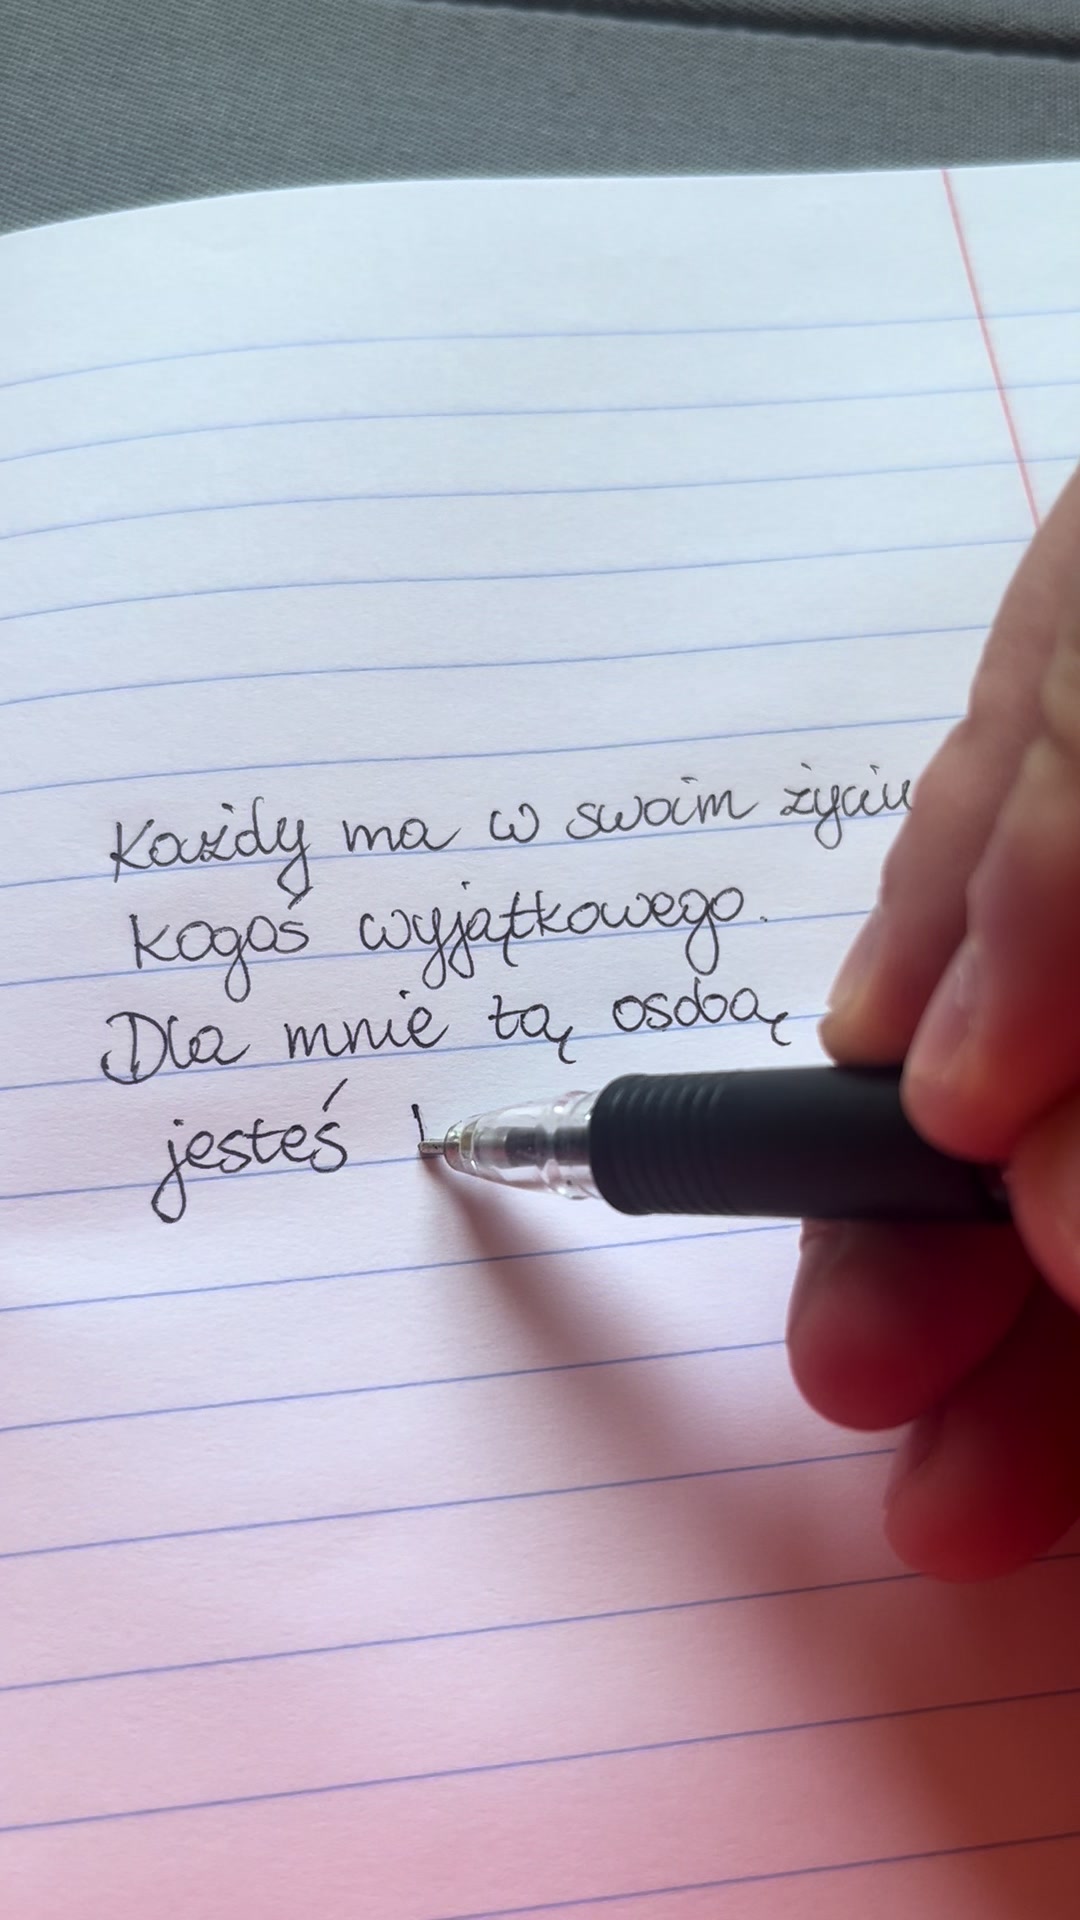 Każdy ma w swoim życiu
kogoś wyjątkowego.
Dla mnie tą osobą
jesteś